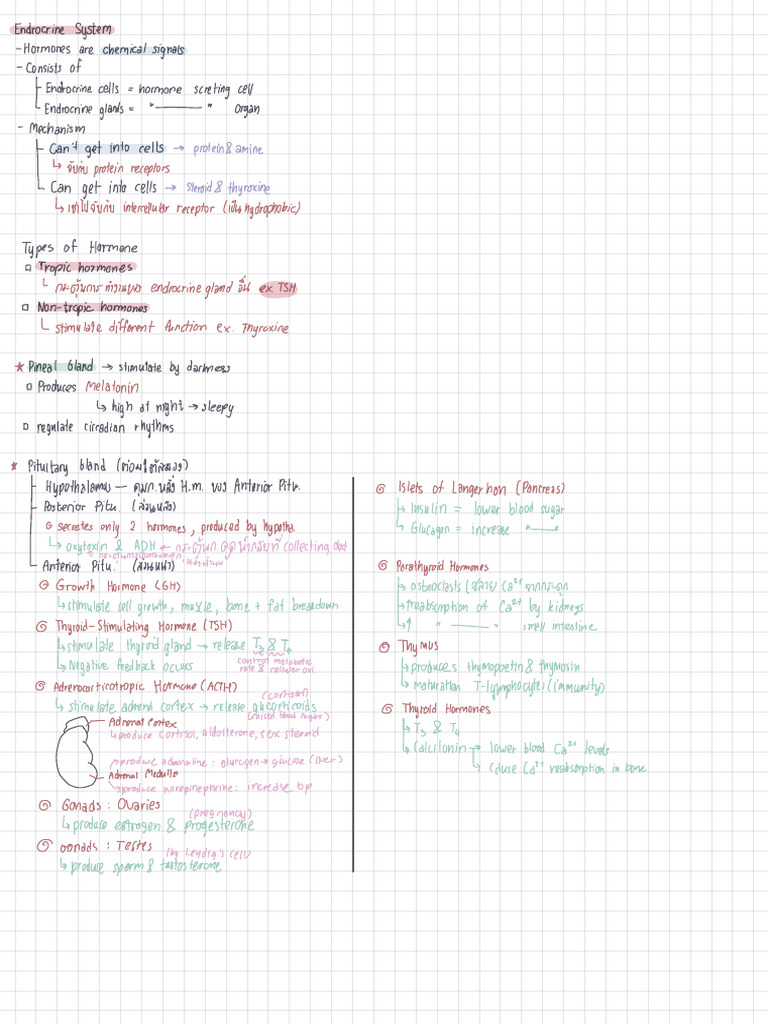 Endrocrine System
- Hormones are chemical signals
- Consists of
Endrocrine cells = hormone screting cell
Endrocrine glands = " ——— " Organ
- Mechanism
Can't get into cells → protein & amine
↳ จับกับ protein receptors
Can get into cells → Steroid & thyroxine
↳ เข้าไปจับกับ intercellular receptor (เป็น hydrophobic)
Types of Hormone
Tropic hormones
กระตุ้นการทำงานของ endrocrine gland อื่น ex TSH
Non-tropic hormones
stimulate different function ex. Thyroxine
* Pineal Gland → stimulate by darkness
Produces Melatonin
↳ high at night → sleepy
regulate circadian rhythms
* Pituitary Gland (ต่อมใต้สมอง)
Hypothalamus — คุมการหลั่ง H.m. ของ Anterior Pitu.
Posterior Pitu. (ส่วนหลัง)
secretes only 2 hormones, produced by hypotha.
↳ oxytoxin & ADH ← กระตุ้นการดูดน้ำกลับที่ collecting duct
Anterior Pitu. (ส่วนหน้า)
Growth Hormone (GH)
↳ stimulate cell growth, muscle, bone + fat breakdown
Thyroid-Stimulating Hormone (TSH)
↳ stimulate thyroid gland → release T3 & T4
control metabolic
rate & cellular oxi.
↳ Negative feedback occurs
Adrenocorticotropic Hormone (ACTH)
(cortisol)
↳ stimulate adrenal cortex → release glucorticoids
(raised blood sugar)
Adrenal Cortex
↳ produce cortisol, aldosterone, sex steroid
produce adrenaline: glucogen → glucose (liver)
Adrenal Medulla
produce norepinephrine: increase bp
Gonads: Ovaries
(pregnancy)
↳ produce estrogen & progesterone
Gonads: Testes
(by Leydig's cell)
↳ produce sperm & testosterone
Islets of Langerhan (Pancreas)
↳ Insulin = lower blood sugar
↳ Glucagon = increase "——"
Parathyroid Hormones
↳ osteoclasts (สลาย Ca2+ จากกระดูก
↳ reabsorption of Ca2+ by kidneys
↳ ↑ " ——— " small intestine
Thymus
↳ produces thymopoetin & thymosin
↳ maturation T-lymphocytes (immunity)
Thyroid Hormones
↳ T3 & T4
↳ Calcitonin → lower blood Ca2+ levels
↳ cause Ca2+ reabsorption in bone